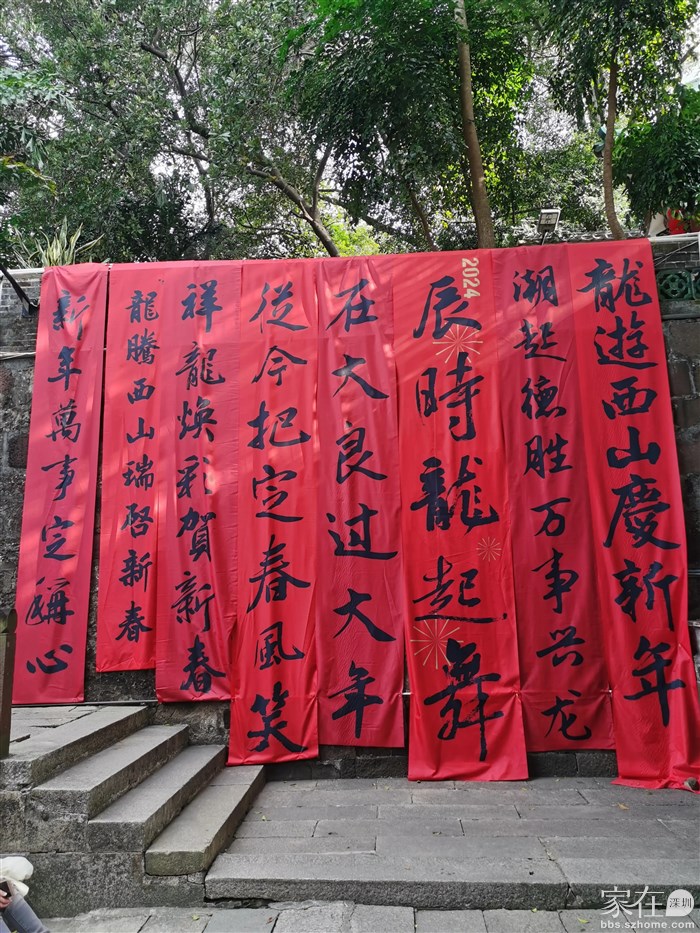 龍遊西山慶新年
潮起德胜万事兴龙
2024
辰時龍起舞
在大良过大年
從今把定春風笑
祥龍焕彩賀新春
龍騰西山瑞启新春
新年萬事定稱心
家在深圳
bbs.szhome.com